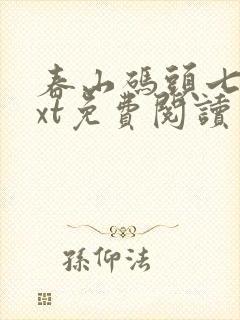 春山碼頭七
xt免費閱讀
孫仰法